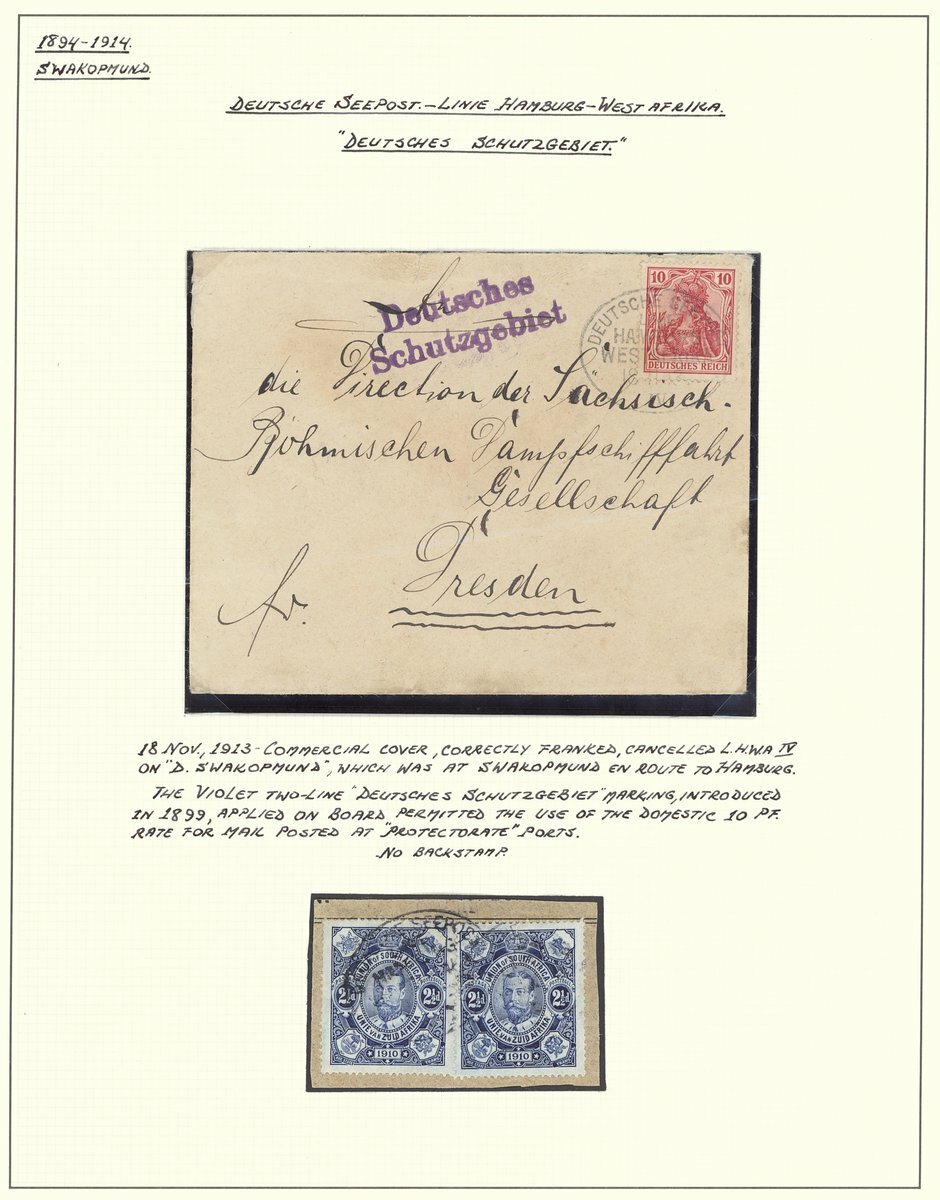 1894-1914.
SWAKOPMUND.
DEUTSCHE SEEPOST.-LINIE HAMBURG-WEST AFRIKA.
"DEUTSCHES SCHUTZGEBIET."
Deutsches
Schutzgebiet
10 10
DEUTSCHES REICH
DEUTSCHE
die Direction der Sächsisch-
Böhmischen Dampfschifffahrt
Gesellschaft
Dresden
18 NOV., 1913-COMMERCIAL COVER, CORRECTLY FRANKED, CANCELLED L.H.W.A IV
ON "D. SWAKOPMUND", WHICH WAS AT SWAKOPMUND EN ROUTE TO HAMBURG.
THE VIOLET TWO-LINE "DEUTSCHES SCHUTZGEBIET" MARKING, INTRODUCED
IN 1899, APPLIED ON BOARD, PERMITTED THE USE OF THE DOMESTIC 10 PF.
RATE FOR MAIL POSTED AT "PROTECTORATE" PORTS.
NO BACKSTAMP.
SEEPOST
UNION OF SOUTH AFRICA
2½d 2½d
UNIE VAN ZUID AFRIKA
1910
UNION OF SOUTH AFRICA
2½d 2½d
UNIE VAN ZUID AFRIKA
1910